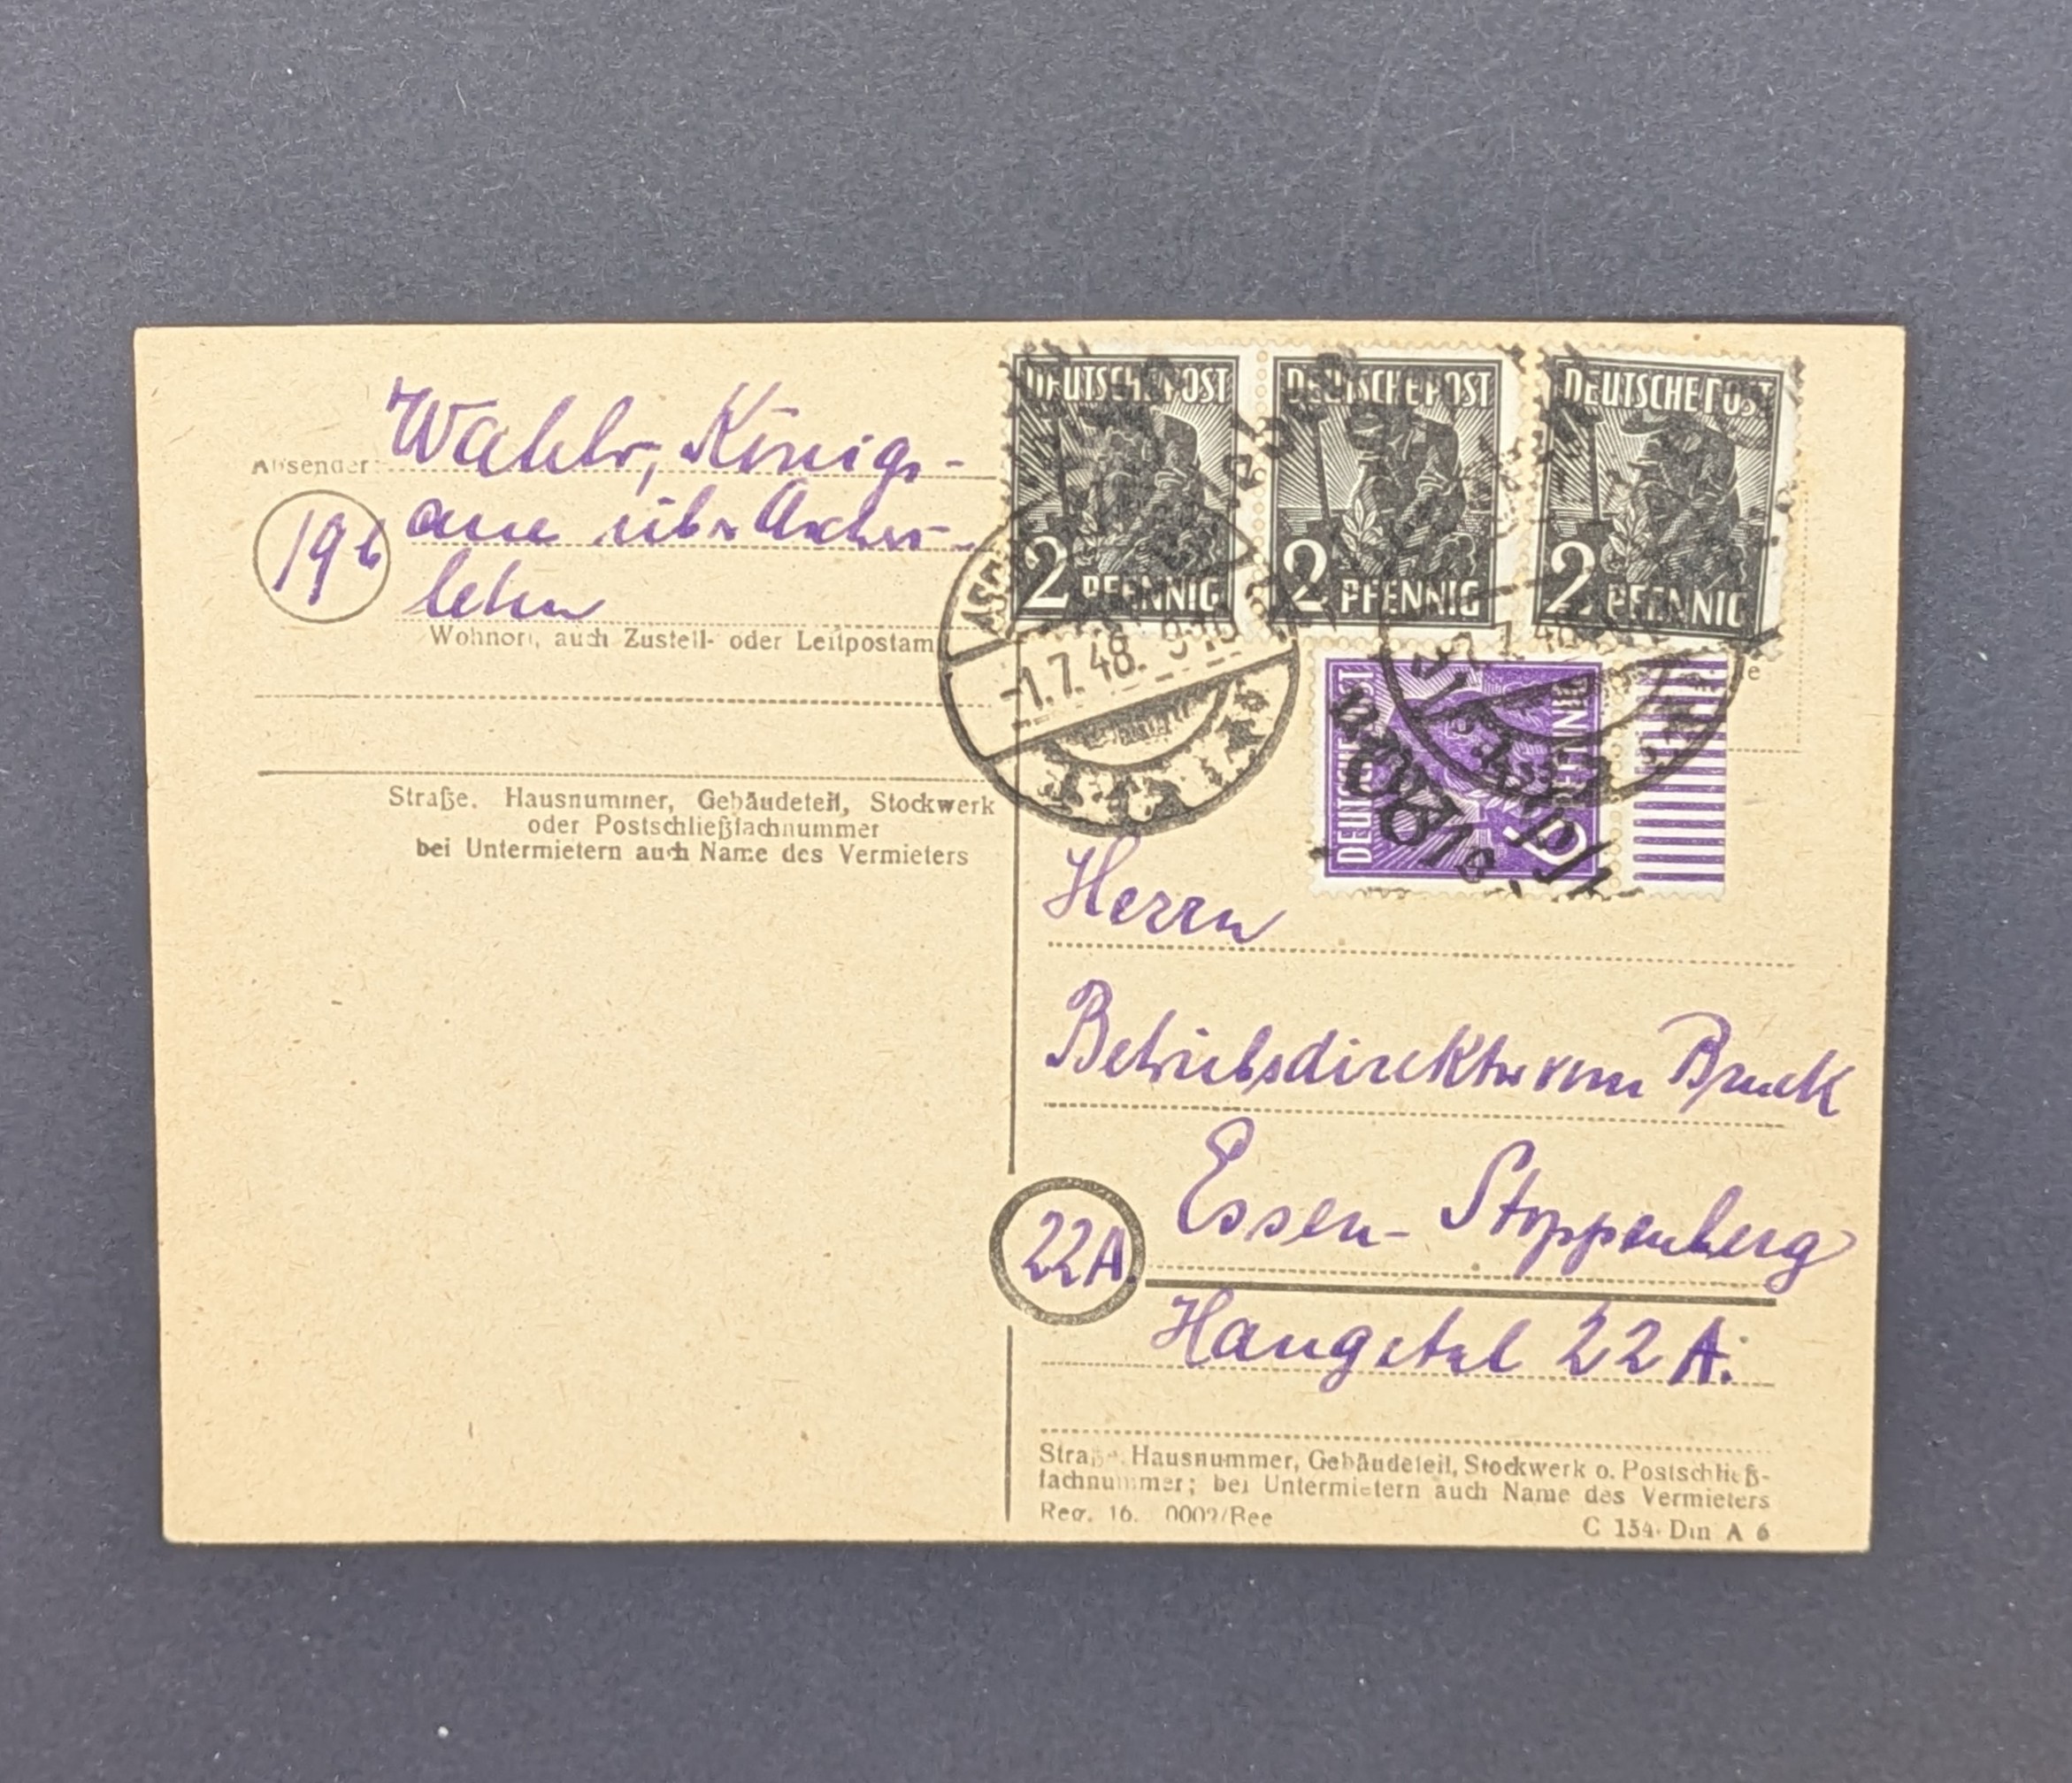 Absender: Wahle, Königs-
19b aue über Aschers-
leben
Wohnort, auch Zustell- oder Leitpostamt
Straße, Hausnummer, Gebäudeteil, Stockwerk
oder Postschließfachnummer
bei Untermietern auch Name des Vermieters
DEUTSCHE POST
2 PFENNIG
DEUTSCHE POST
2 PFENNIG
DEUTSCHE POST
2 PFENNIG
-1.7.48.
DEUTSCHE POST
PFENNIG
Herrn
Betriebsdirektor vom Bruck
22A. Essen-Stoppenberg
Hangetal 22 A.
Straße, Hausnummer, Gebäudeteil, Stockwerk o. Postschließ-
fachnummer; bei Untermietern auch Name des Vermieters
Reg. 16.
C 154. Din A 6